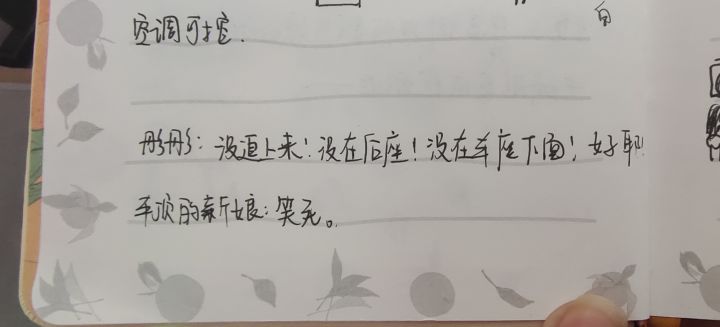 白
空调可控.
彤彤：没追上来！没在后座！没在车座下面！好耶!
车顶的新娘：笑死。